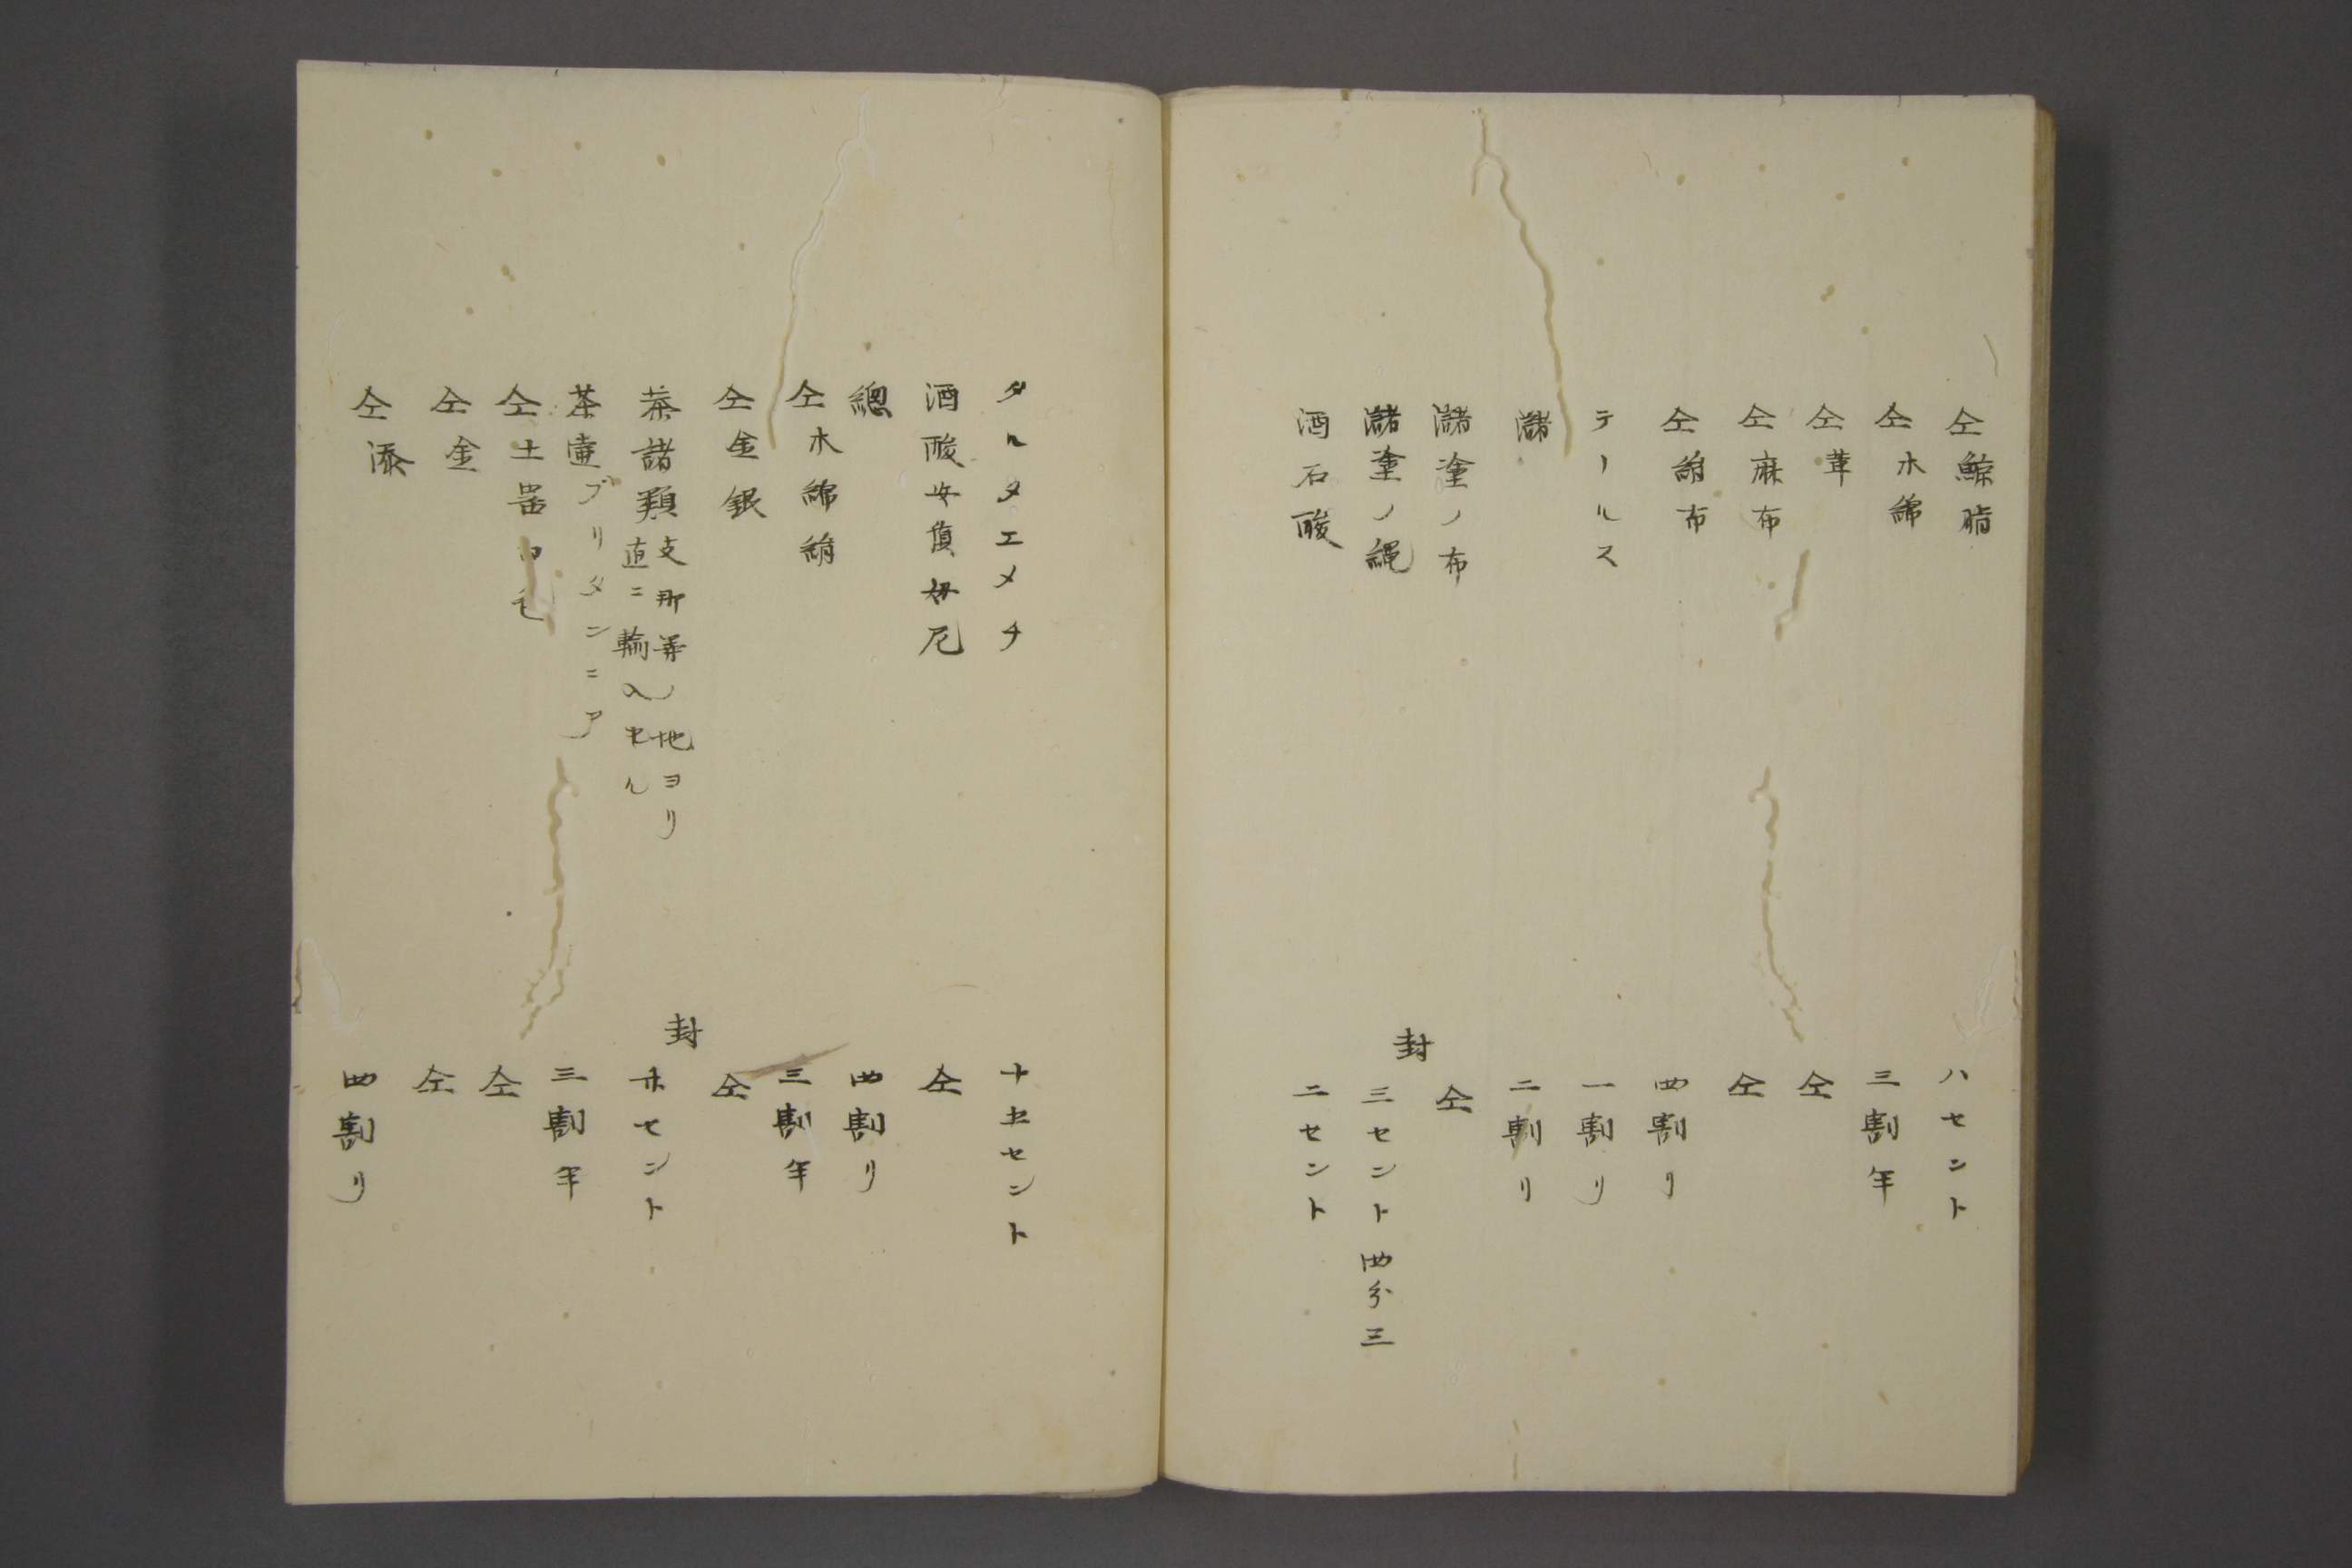 仝鯨脂　ハセント
仝木綿　三割半
仝革　仝
仝麻布　仝
仝絹布　四割リ
テールス　一割リ
瀦　二割リ
瀦塗ノ布　仝
瀦塗ノ縄　封　三セント四分三
酒石酸　二セント
タルタエメチ　十五セント
酒酸安質母尼　仝
總　四割リ
仝木綿絹　三割半
仝金銀　仝
茶諸類　支那等ノ地ヨリ
直ニ輸入セル　封　廾セント
茶壷ブリタンニア　三割半
仝土器　仝
仝金　仝
仝漆　四割リ